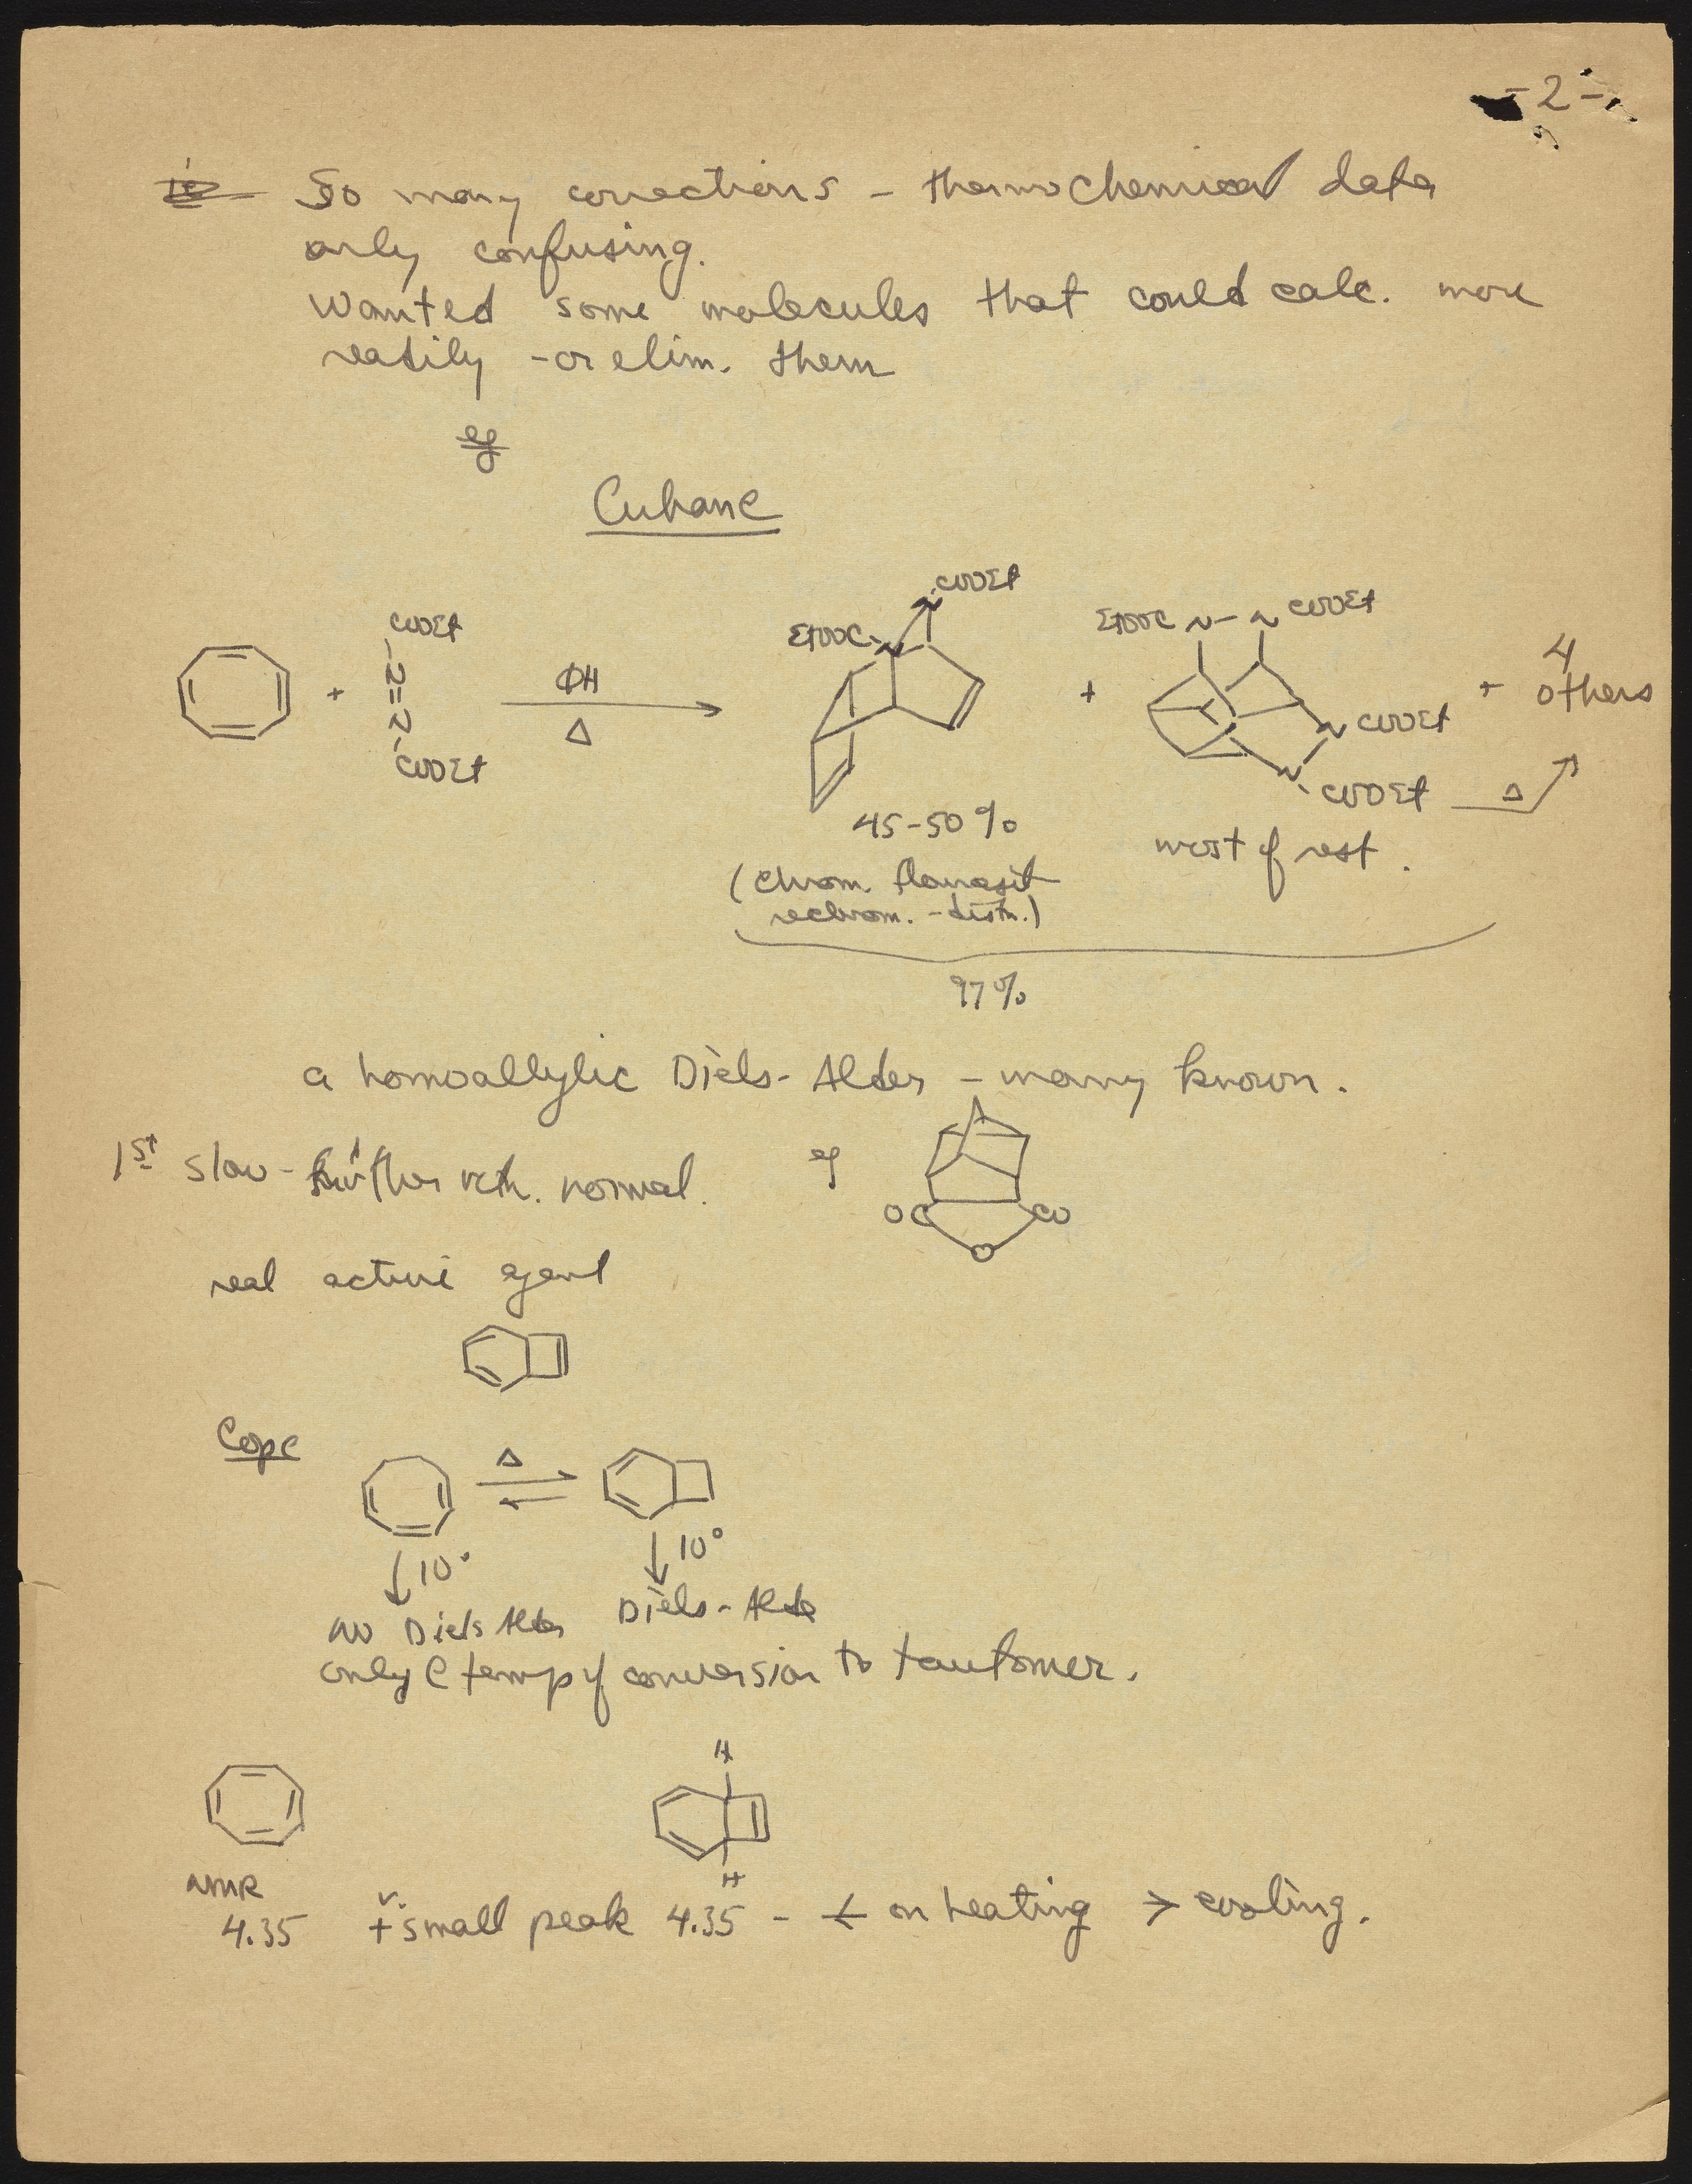 - 2 -
So many corrections - thermochemical data
only confusing.
Wanted some molecules that could calc. more
readily - or elim. them
eg
Cubane
COOEt
N=N
COOEt
+
ΦH
Δ
EtOOC-N
N-COOEt
+
EtOOC N-N COOEt
N COOEt
N-COOEt
Δ
+ 4 others
45-50%
most of rest.
(Chrom. florasil
rechrom. - distn.)
97%
a homoallylic Diels-Alder - many known.
1st slow - further rctn. normal.
eg
OC CO
O
real active agent
Cope
Δ
10°
10°
NO Diels Alder
Diels-Alder
only @ temp of conversion to tautomer.
H
H
NMR
4.35 + v. small peak 4.35 - < on heating > cooling.